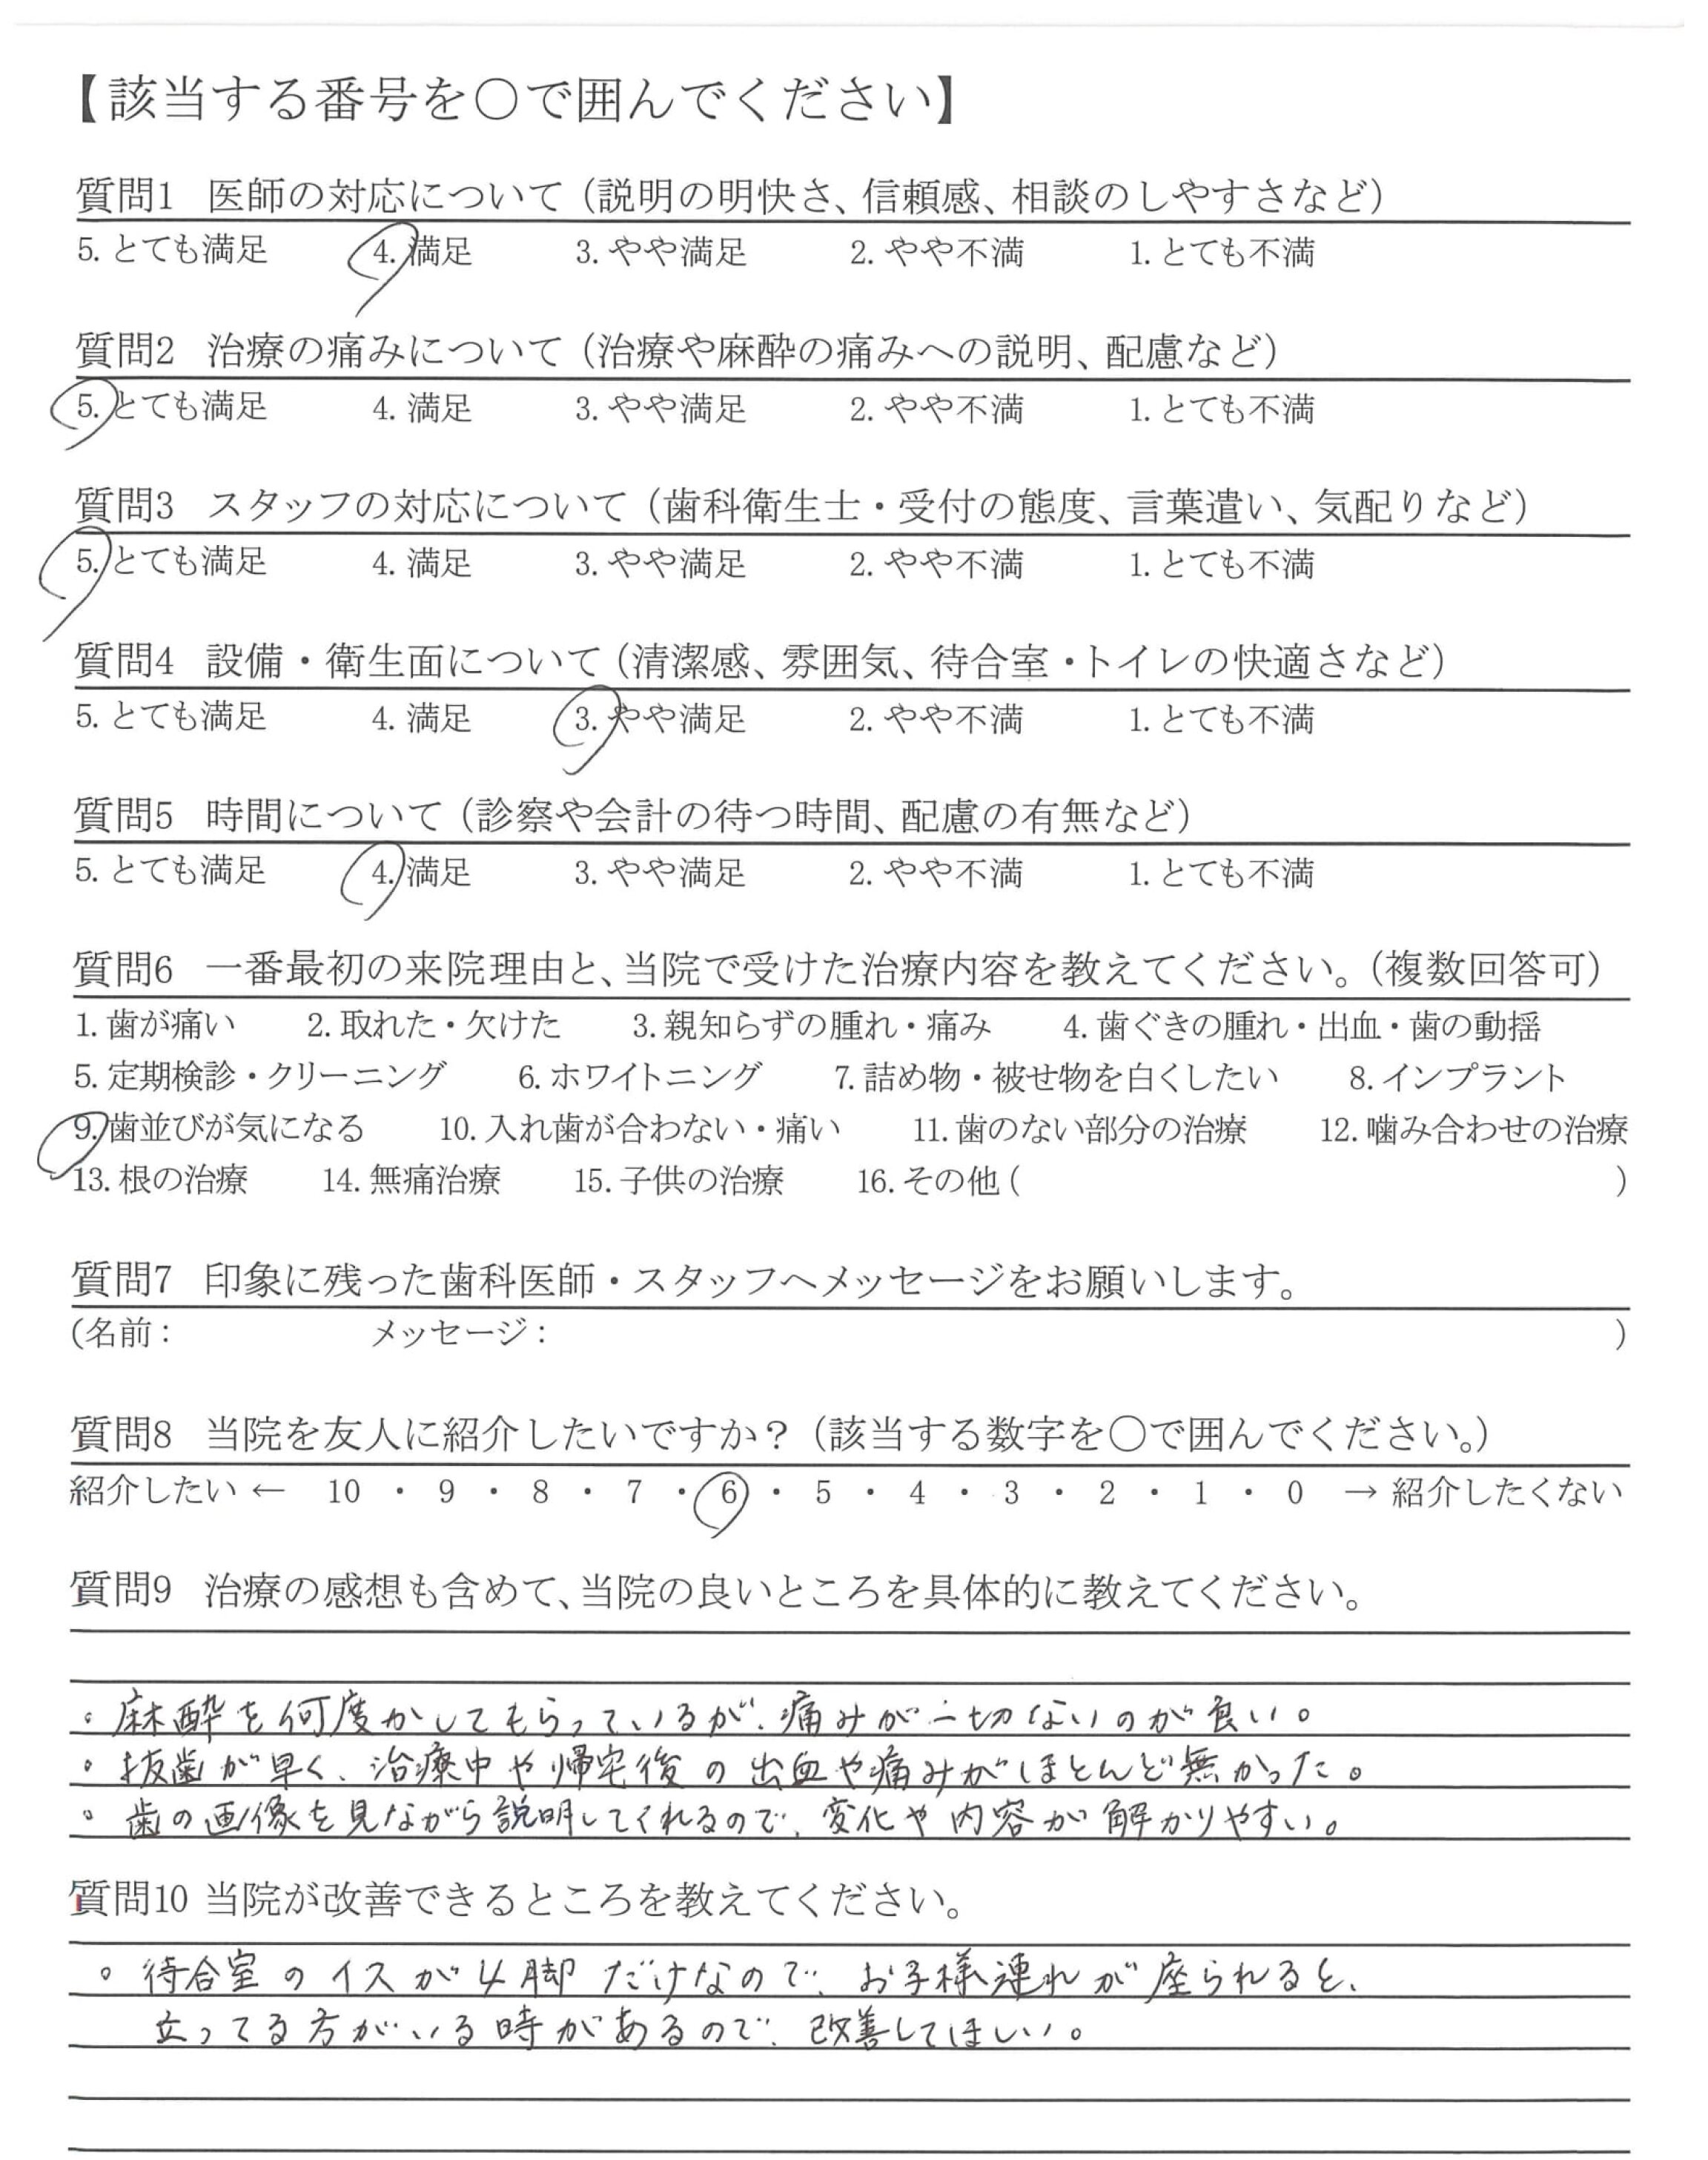 【該当する番号を〇で囲んでください】
質問1 医師の対応について（説明の明快さ、信頼感、相談のしやすさなど）
5. とても満足 4. 満足 3. やや満足 2. やや不満 1. とても不満
質問2 治療の痛みについて（治療や麻酔の痛みへの説明、配慮など）
5. とても満足 4. 満足 3. やや満足 2. やや不満 1. とても不満
質問3 スタッフの対応について（歯科衛生士・受付の態度、言葉遣い、気配りなど）
5. とても満足 4. 満足 3. やや満足 2. やや不満 1. とても不満
質問4 設備・衛生面について（清潔感、雰囲気、待合室・トイレの快適さなど）
5. とても満足 4. 満足 3. やや満足 2. やや不満 1. とても不満
質問5 時間について（診察や会計の待つ時間、配慮の有無など）
5. とても満足 4. 満足 3. やや満足 2. やや不満 1. とても不満
質問6 一番最初の来院理由と、当院で受けた治療内容を教えてください。（複数回答可）
1. 歯が痛い 2. 取れた・欠けた 3. 親知らずの腫れ・痛み 4. 歯ぐきの腫れ・出血・歯の動揺
5. 定期検診・クリーニング 6. ホワイトニング 7. 詰め物・被せ物を白くしたい 8. インプラント
9. 歯並びが気になる 10. 入れ歯が合わない・痛い 11. 歯のない部分の治療 12. 噛み合わせの治療
13. 根の治療 14. 無痛治療 15. 子供の治療 16. その他（ ）
質問7 印象に残った歯科医師・スタッフへメッセージをお願いします。
（名前： メッセージ： ）
質問8 当院を友人に紹介したいですか？（該当する数字を〇で囲んでください。）
紹介したい ← 10 ・ 9 ・ 8 ・ 7 ・ 6 ・ 5 ・ 4 ・ 3 ・ 2 ・ 1 ・ 0 → 紹介したくない
質問9 治療の感想も含めて、当院の良いところを具体的に教えてください。
。麻酔を何度かしてもらっているが、痛みが一切ないのが良い。
。抜歯が早く、治療中や帰宅後の出血や痛みがほとんど無かった。
。歯の画像を見ながら説明してくれるので、変化や内容が解かりやすい。
質問10 当院が改善できるところを教えてください。
。待合室のイスが4脚だけなので、お子様連れが座られると、
立ってる方がいる時があるので、改善してほしい。